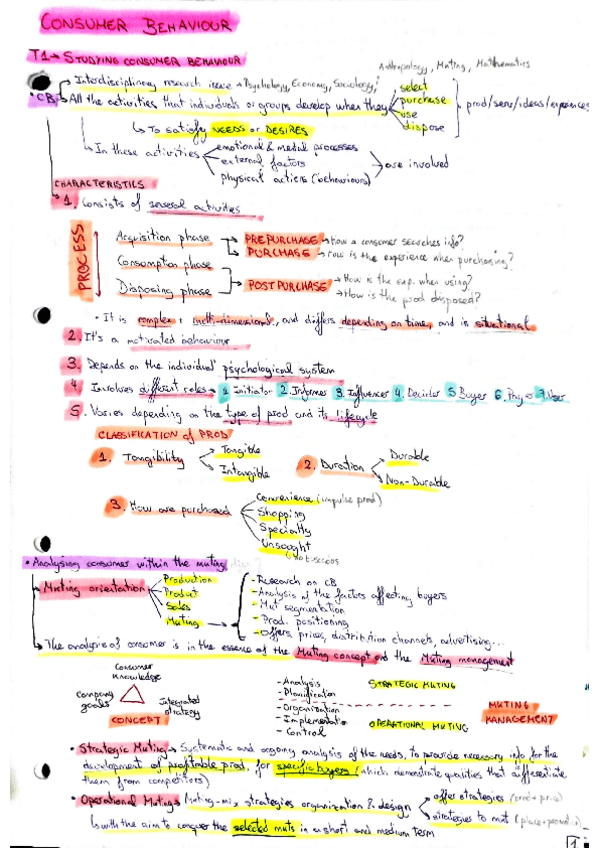 CONSUMER BEHAVIOUR
T1 → STUDYING CONSUMER BEHAVIOUR
Anthropology, Mkting, Mathematics
Interdisciplinary research → Psychology, Economy, Sociology,
• CB → All the activities that individuals or groups develop when they
select
purchase
use
dispose
prod/serv/ideas/experiences
↳ To satisfy NEEDS or DESIRES
↳ In these activities
emotional & mental processes
external factors
physical actions (behaviours)
are involved
CHARACTERISTICS
1. Consists of several activities
PROCESS
Acquisition phase → PREPURCHASE → How a consumer searches info?
PURCHASE → How is the experience when purchasing?
Consumption phase
Disposing phase
POSTPURCHASE → How is the exp. when using?
→ How is the prod disposed?
• It is complex & multi-dimensional, and differs depending on time, and in situational
2. It's a motivated behaviour
3. Depends on the individual' psychological system
4. Involves different roles → 1. Initiator 2. Informer 3. Influencer 4. Decider 5. Buyer 6. Payer 7. User
5. Varies depending on the type of prod and its lifecycle
CLASSIFICATION of PROD
1. Tangibility
Tangible
Intangible
2. Duration
Durable
Non-Durable
3. How are purchased
Convenience (impulse prod)
Shopping
Specialty
Unsought
• Analysing consumer within the mkting
Mkting orientation
Production
Product
Sales
Mkting
- Research on CB
- Analysis of the factors affecting buyers
- Mkt segmentation
- Prod. positioning
- Offers, prices, distribution channels, advertising...
↳ The analysis of consumer is in the essence of the Mkting concept and the Mkting management
Consumer knowledge
Company goals
Integrated strategy
CONCEPT
- Analysis
- Planification
- Organization
- Implementation
- Control
STRATEGIC MKTING
OPERATIONAL MKTING
MKTING MANAGEMENT
• Strategic Mkting → Systematic and ongoing analysis of the needs, to provide necessary info for the
development of profitable prod, for specific buyers (which demonstrate qualities that differentiate
them from competitors)
• Operational Mkting → Mkting-mix, strategies organization & design
offer strategies (prod + price)
strategies to mkt (place + promotion)
↳ with the aim to conquer the selected mkts in a short and medium term
1